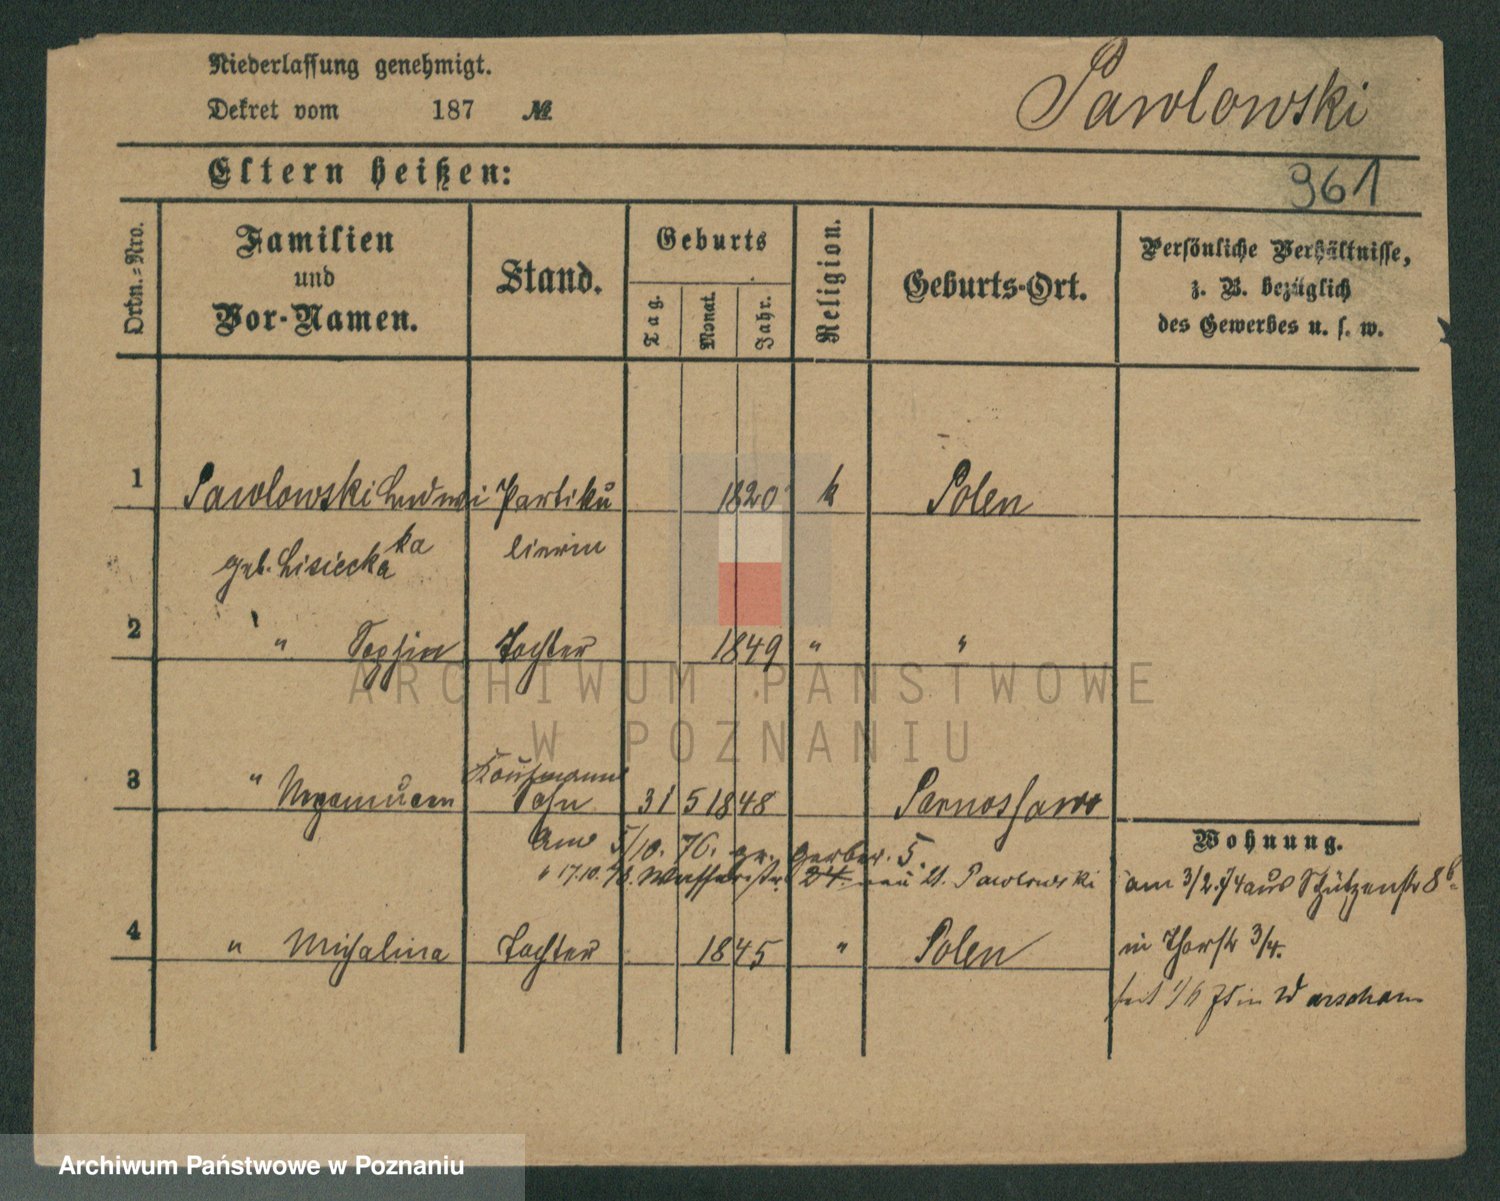 Niederlassung genehmigt.
Dekret vom 187 №
Pawlowski
Eltern heißen:
961
Ordn.-Nro.
Familien und Vor-Namen.
Stand.
Geburts
Tag. Monat. Jahr.
Religion.
Geburts-Ort.
Persönliche Verhältnisse, z. B. bezüglich des Gewerbes u. s. w.
1 Pawlowski Ludwi Partiku 1820 k Polen
ka
geb. Lisiecka lierin
2 " Sophie Tochter 1849 " "
Kaufmann
3 " Sohn 31 5 1848
Wohnung.
am 5/10. 76. gr. Gerber. 5.
" 17.10. Wasserstr. 24. Pawlowski
am 3/2.74 aus Schützenstr 8b
4 " Michalina Tochter 1845 " Polen
in Thorstr 3/4.
seit in Warschau
ARCHIWUM PAŃSTWOWE
W POZNANIU
Archiwum Państwowe w Poznaniu